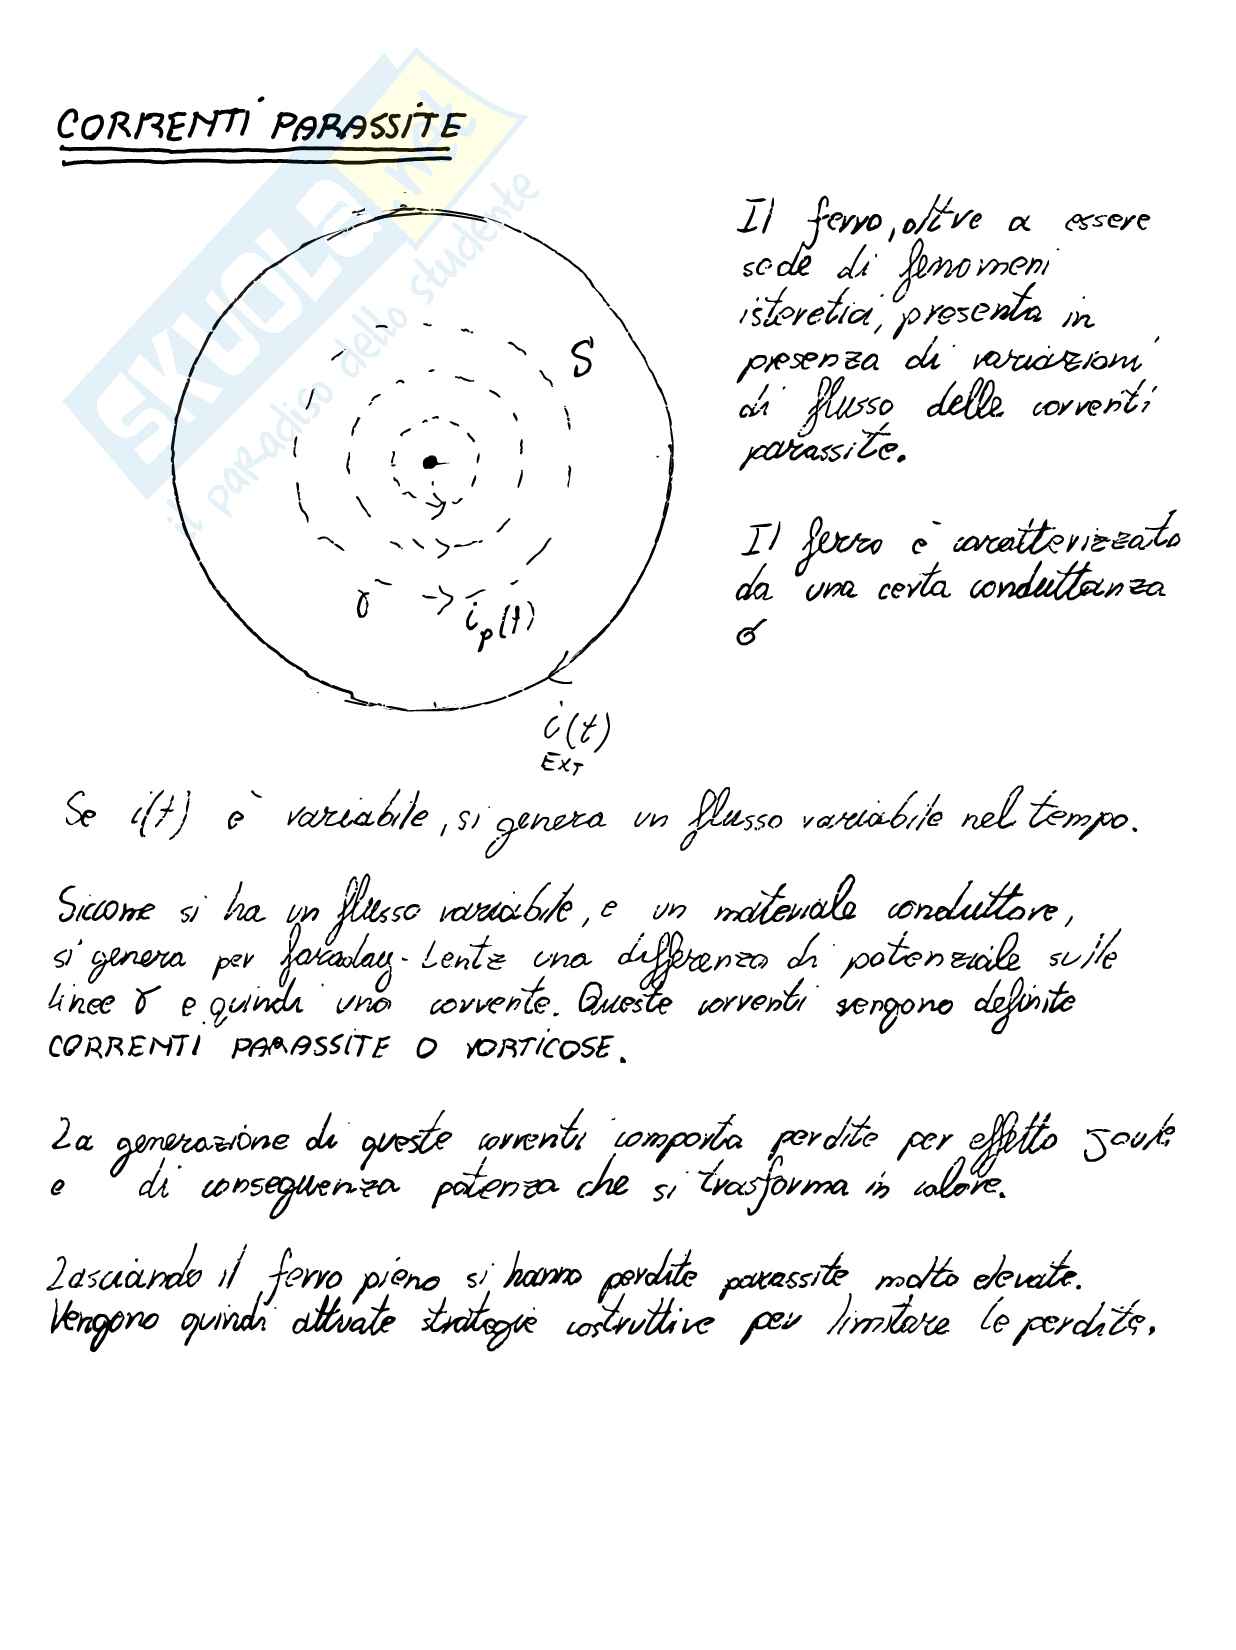 CORRENTI PARASSITE
SKUOLA.net
il paradiso dello studente
Il ferro, oltre a essere
sede di fenomeni
isteretici, presenta in
presenza di variazioni
di flusso delle correnti
parassite.
S
Il ferro è caratterizzato
da una certa conduttanza
σ
γ → i_p(t)
i(t)
EXT
Se i(t) è variabile, si genera un flusso variabile nel tempo.
Siccome si ha un flusso variabile, e un materiale conduttore,
si genera per faraday-Lentz una differenza di potenziale sulle
linee γ e quindi una corrente. Queste correnti vengono definite
CORRENTI PARASSITE O VORTICOSE.
La generazione di queste correnti comporta perdite per effetto Joule
e di conseguenza potenza che si trasforma in calore.
Lasciando il ferro pieno si hanno perdite parassite molto elevate.
Vengono quindi attuate strategie costruttive per limitare le perdite.